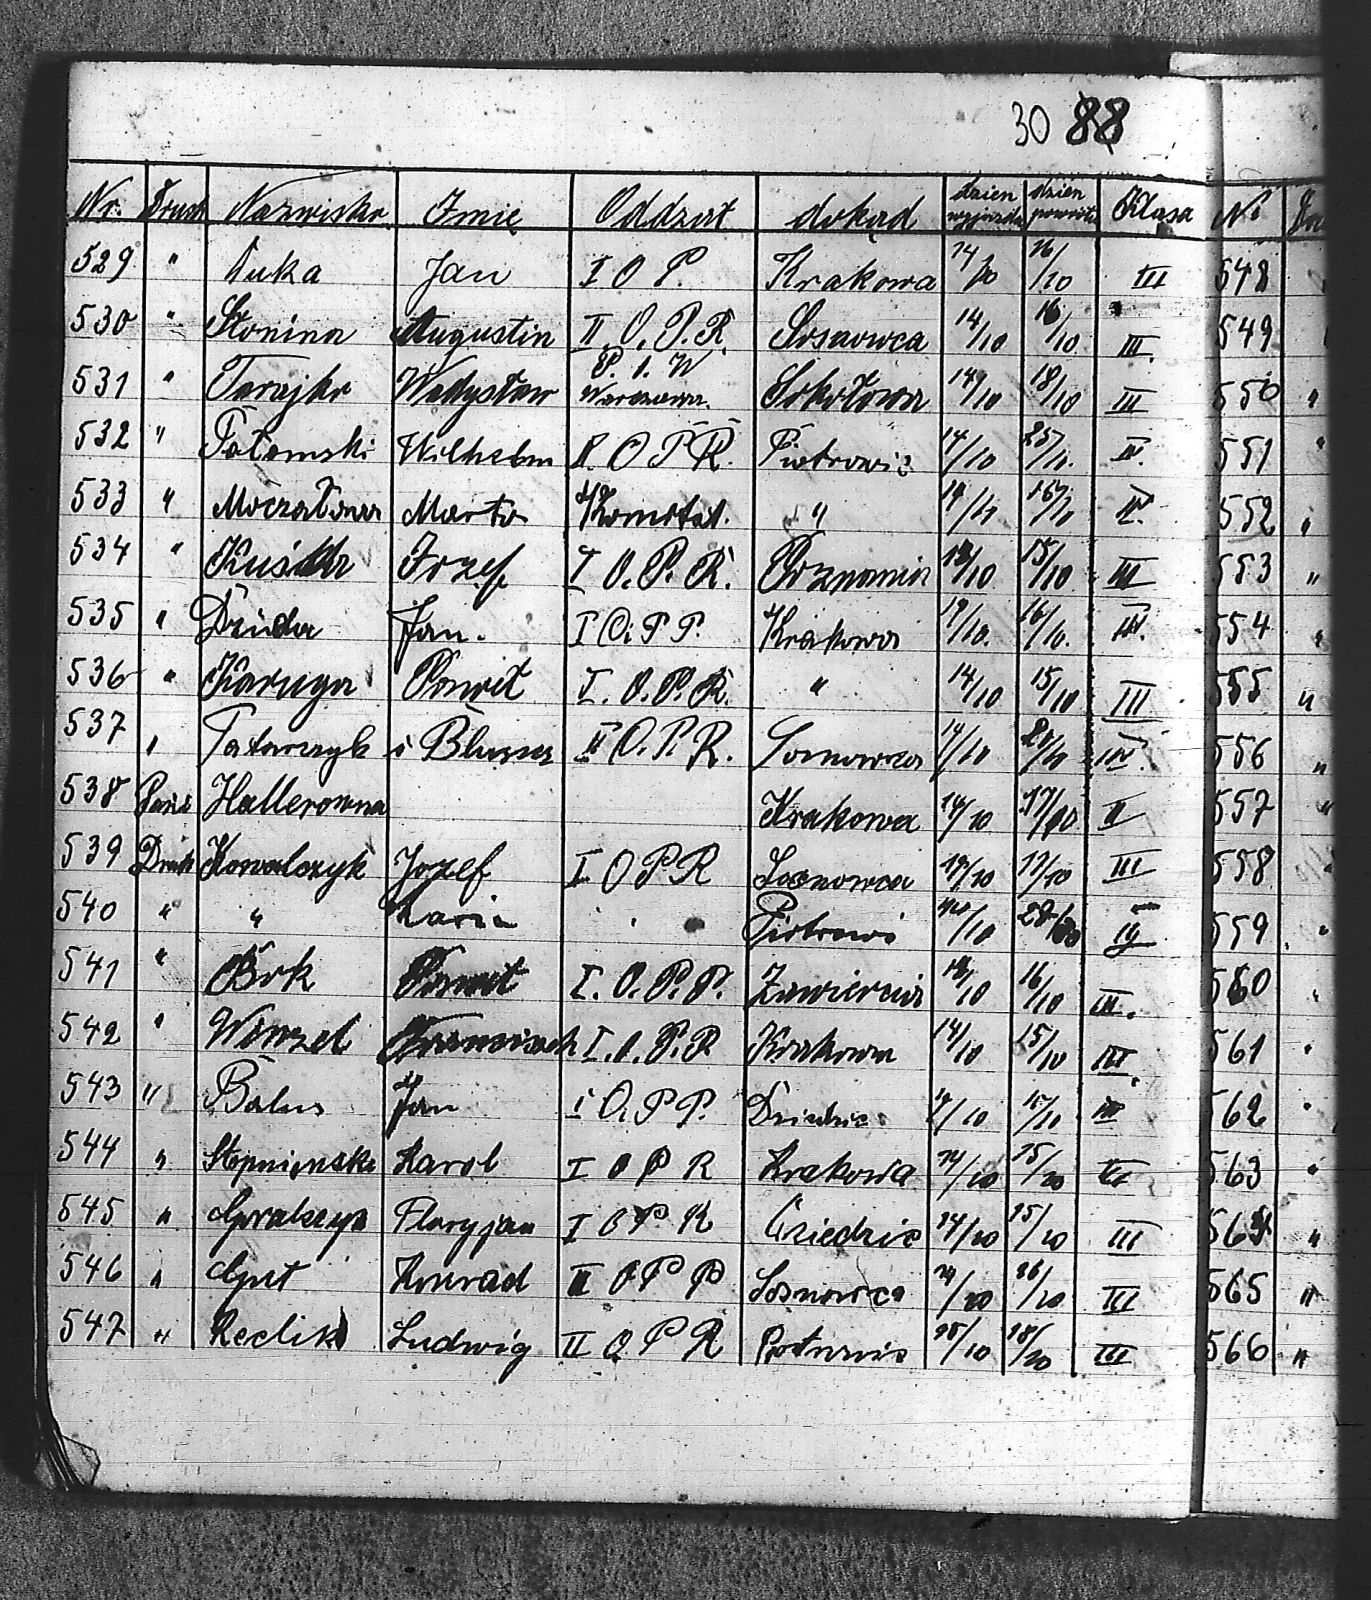 30 88
Nr. Druch Nazwisko Imię Oddział dokąd dzien wyjazdu dzien powrotu Klasa Nr
529 " Kuka Jan I O P. Krakowa 14/10 16/10 III 548
530 " Słonina Augustin II. O. P. R. Sosnowca 14/10 16/10 III. 549
531 " Tarajko Władysław P. 1. W Warszawa. Sokołowa 14/10 18/10 III 550 "
532 " Wilhelm II. O P R. Piotrowic 14/10 25/10. II. 551 "
533 " Marta Komitet. " 14/10 II. 552 "
534 " Jozef I O. P. R. Poznania 15/10 III 553 "
535 " Dziuda Jan. I O. P P. Krakowa 16/10. III. 554 "
536 " Karuga Paweł I. O. P. R. " 14/10 15/10 III 555 "
537 " Tatarczyk i II O. P. R. Sosnowca 14/10 III. 556 "
538 Pani Hallerowna Krakowa 14/10 17/10 II 557 "
539 Druh Kowalczyk Jozef I O P R Sosnowca 17/10 III 558 "
540 " " Maria " " Piotrowic 14/10 28/10 559 "
541 " Bok Paweł I. O. P. P. Zawiercia 16/10 III. 560 "
542 " Wenzel I. O. P. R. Krakowa 14/10 15/10 III. 561 "
543 " Balus Jan I O. P P. Dziedzic 14/10 15/10 III 562 "
544 " Karol I O P R Krakowa 14/10 15/10 III 563 "
545 " Gralczyk Floryjan I O P R Dziedzic 14/10 15/10 III 564 "
546 " Gut Konrad II O P P Sosnowca 14/10 16/10 III 565 "
547 " Reclik Ludwig II O P R Piotrowic 15/10 18/10 III 566 "